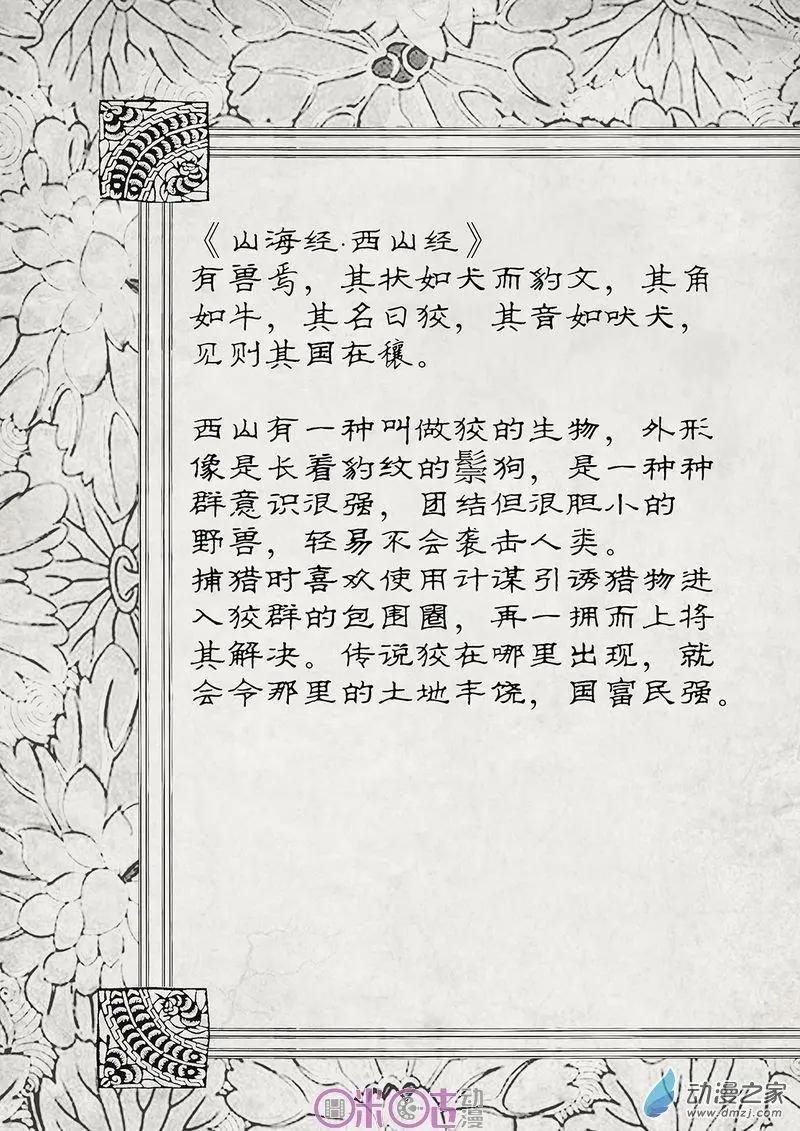 《山海经·西山经》
有兽焉，其状如犬而豹文，其角
如牛，其名曰狡，其音如吠犬，
见则其国在穰。
西山有一种叫做狡的生物，外形
像是长着豹纹的鬃狗，是一种种
群意识很强，团结但很胆小的
野兽，轻易不会袭击人类。
捕猎时喜欢使用计谋引诱猎物进
入狡群的包围圈，再一拥而上将
其解决。传说狡在哪里出现，就
会令那里的土地丰饶，国富民强。
咪咕动漫
动漫之家
www.dmzj.com